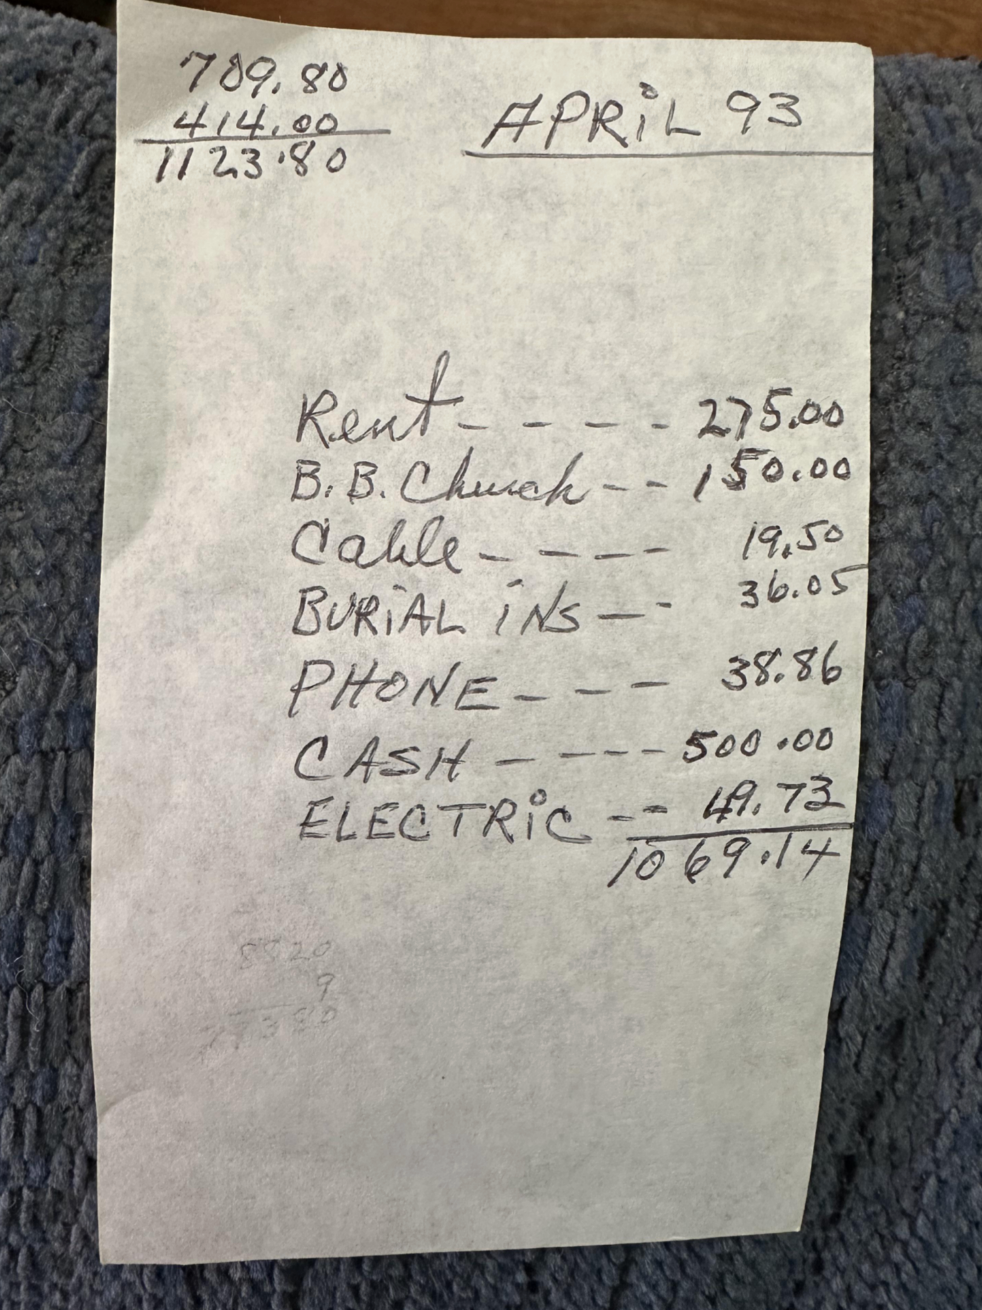 709.80
414.00
1123.80
APRiL 93
Rent - - - - - 275.00
B.B. Church - - 150.00
Cable - - - - 19.50
BURiAL iNS - - 36.05
PHONE - - - 38.86
CASH - - - - - 500.00
ELECTRiC - - 49.73
1069.14
8820
9